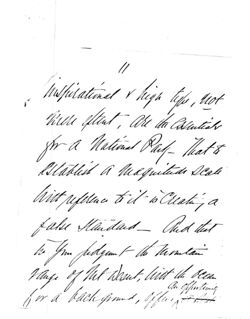 11
inspirational & high type, not
mere extent, are the essentials
for a National Park – that to
establish a magnitude scale
with reference to it is creating a
false standard – And that
in your judgment the mountain
range of Mt Desert, with the Ocean
for a background, offers
an opportunity